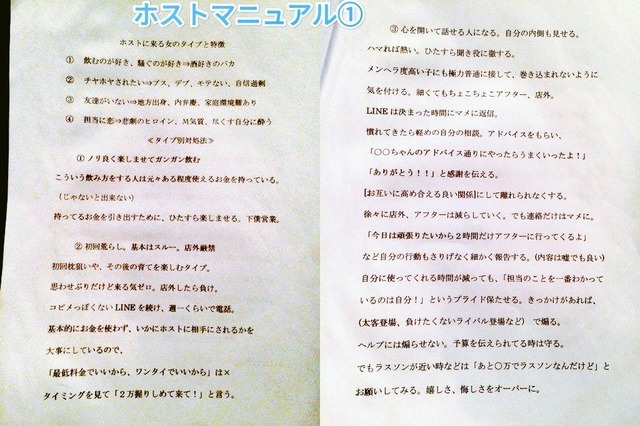 ホストマニュアル①
ホストに来る女のタイプと特徴
① 飲むのが好き、騒ぐのが好き⇒酒好きのバカ
② チヤホヤされたい⇒ブス、デブ、モテない、自信過剰
③ 友達がいない⇒地方出身、内弁慶、家庭環境難あり
④ 担当に恋⇒悲劇のヒロイン、M気質、尽くす自分に酔う
≪タイプ別対処法≫
① ノリ良く楽しませてガンガン飲む
こういう飲み方をする人は元々ある程度使えるお金を持っている。
（じゃないと出来ない）
持ってるお金を引き出すために、ひたすら楽しませる。下僕営業。
② 初回荒らし。基本はスルー。店外厳禁
初回枕狙いや、その後の育てを楽しむタイプ。
思わせぶりだけど来る気ゼロ。店外したら負け。
コピメっぽくない LINE を続け、週一くらいで電話。
基本的にお金を使わず、いかにホストに相手にされるかを
大事にしているので、
「最低料金でいいから、ワンタイでいいから」は×
タイミングを見て「２万握りしめて来て！」と言う。
③ 心を開いて話せる人になる。自分の内側も見せる。
ハマれば熱い。ひたすら聞き役に徹する。
メンヘラ度高い子にも極力普通に接して、巻き込まれないように
気を付ける。細くてもちょこちょこアフター、店外。
LINE は決まった時間にマメに返信。
慣れてきたら軽めの自分の相談。アドバイスをもらい、
「〇〇ちゃんのアドバイス通りにやったらうまくいったよ！」
「ありがとう！！」と感謝を伝える。
[お互いに高め合える良い関係]にして離れられなくする。
徐々に店外、アフターは減らしていく。でも連絡だけはマメに。
「今日は頑張りたいから２時間だけアフターに行ってくるよ」
など自分の行動もさりげなく細かく報告する。(内容は嘘でも良い)
自分に使ってくれる時間が減っても、「担当のことを一番わかって
いるのは自分！」というプライド保たせる。きっかけがあれば、
(太客登場、負けたくないライバル登場など）で煽る。
ヘルプには煽らせない。予算を伝えられてる時は守る。
でもラスソンが近い時などは「あと〇万でラスソンなんだけど」と
お願いしてみる。嬉しさ、悔しさをオーバーに。